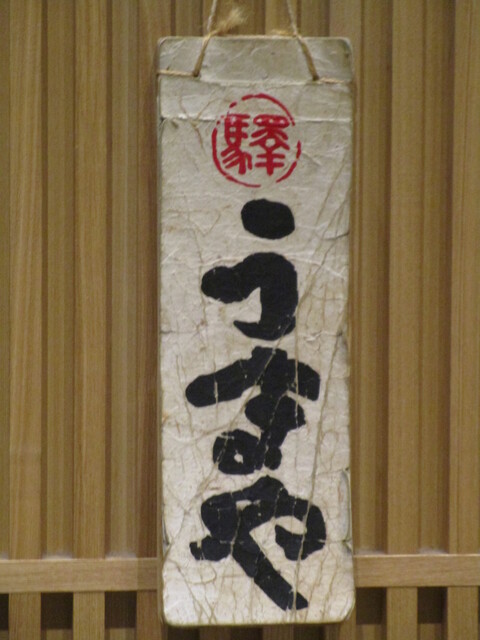 驛
うまや